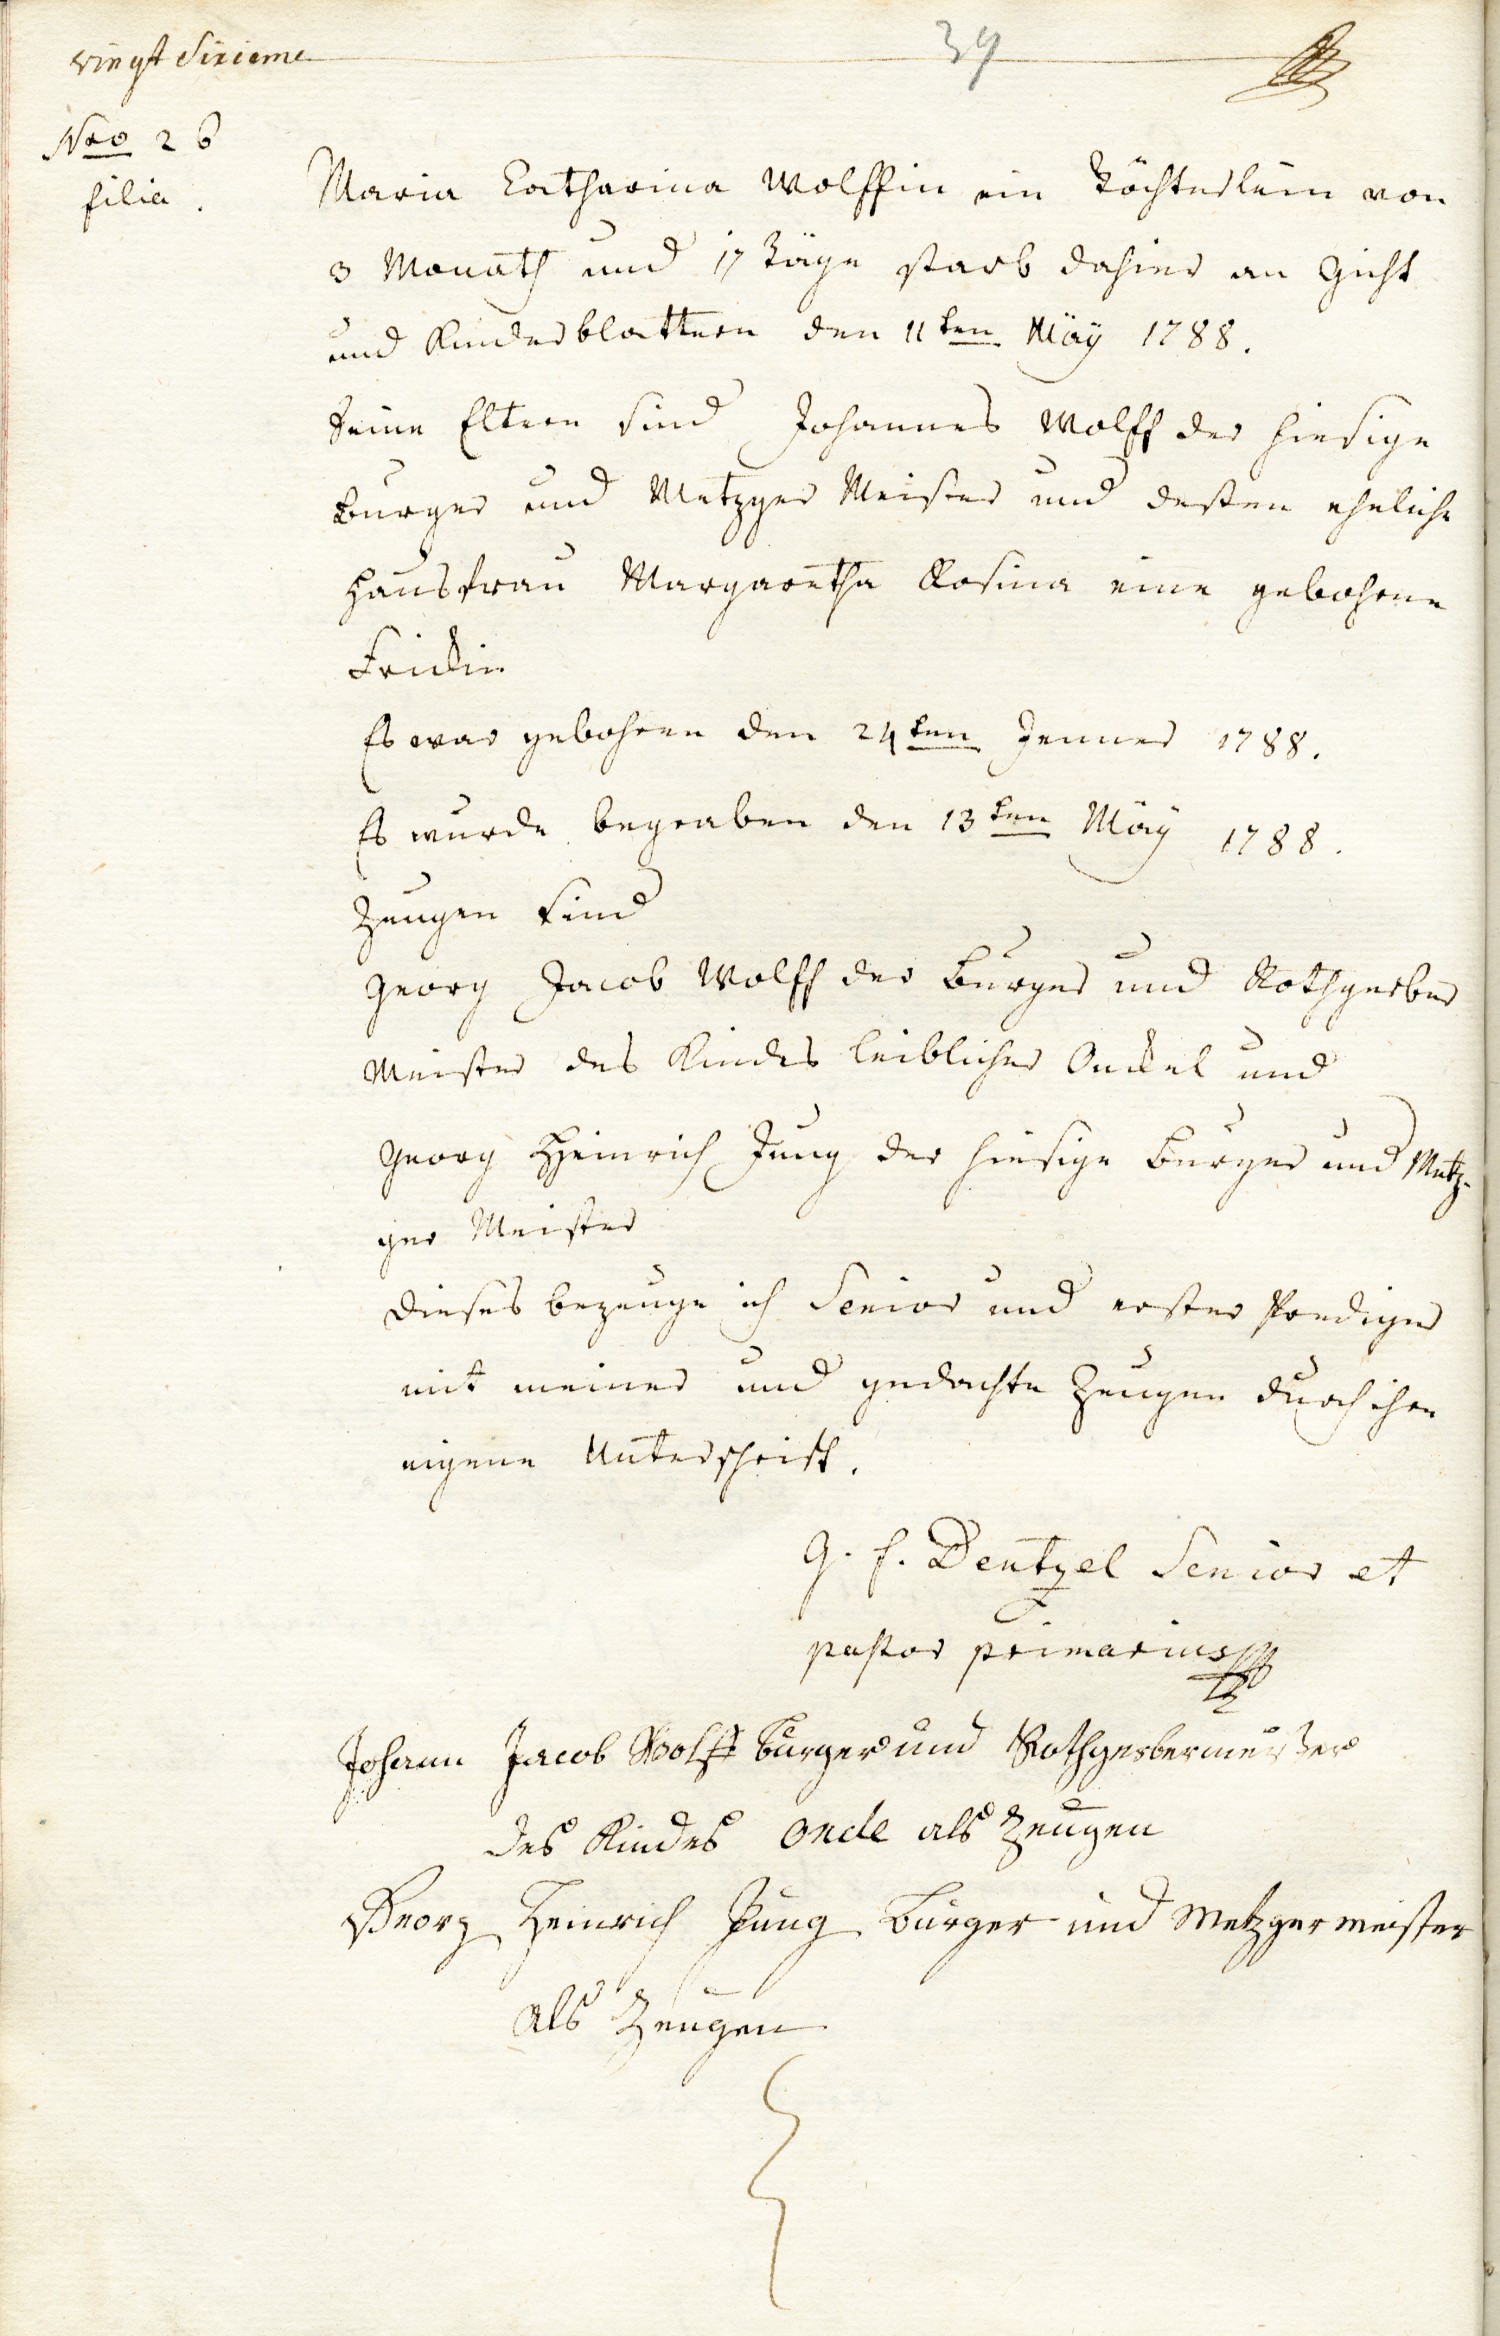 vingt Sixieme
39
Nro 26
filia.
Maria Catharina Wolffin ein Töchterlein von
3 Monath und 17 Täge starb dahier an Gicht
und Kinderblattern den 11ten Mäÿ 1788.
Seine Eltern sind Johannes Wolff der hiesige
Burger und Metzger Meister und dessen eheliche
Hausfrau Margaretha Rosina eine gebohrne
Frickin
Es war gebohren den 24ten Jenner 1788.
Es wurde begraben den 13ten Mäÿ 1788.
Zeugen sind
Georg Jacob Wolff der Burger und Rothgerber
Meister des Kindes leiblicher Onckel und
Georg Heinrich Jung der hiesige Burger und Metz-
ger Meister
Dieses bezeuge ich Senior und erster Prediger
mit meiner und gedachte Zeugen durch ihre
eigene Unterschrift.
G. F. Dentzel Senior et
pastor primarius
Johann Jacob Wolff burger und Rothgerbermeister
des Kindes oncle als Zeugen
Georg Heinrich Jung Burger und Metzgermeister
als Zeugen